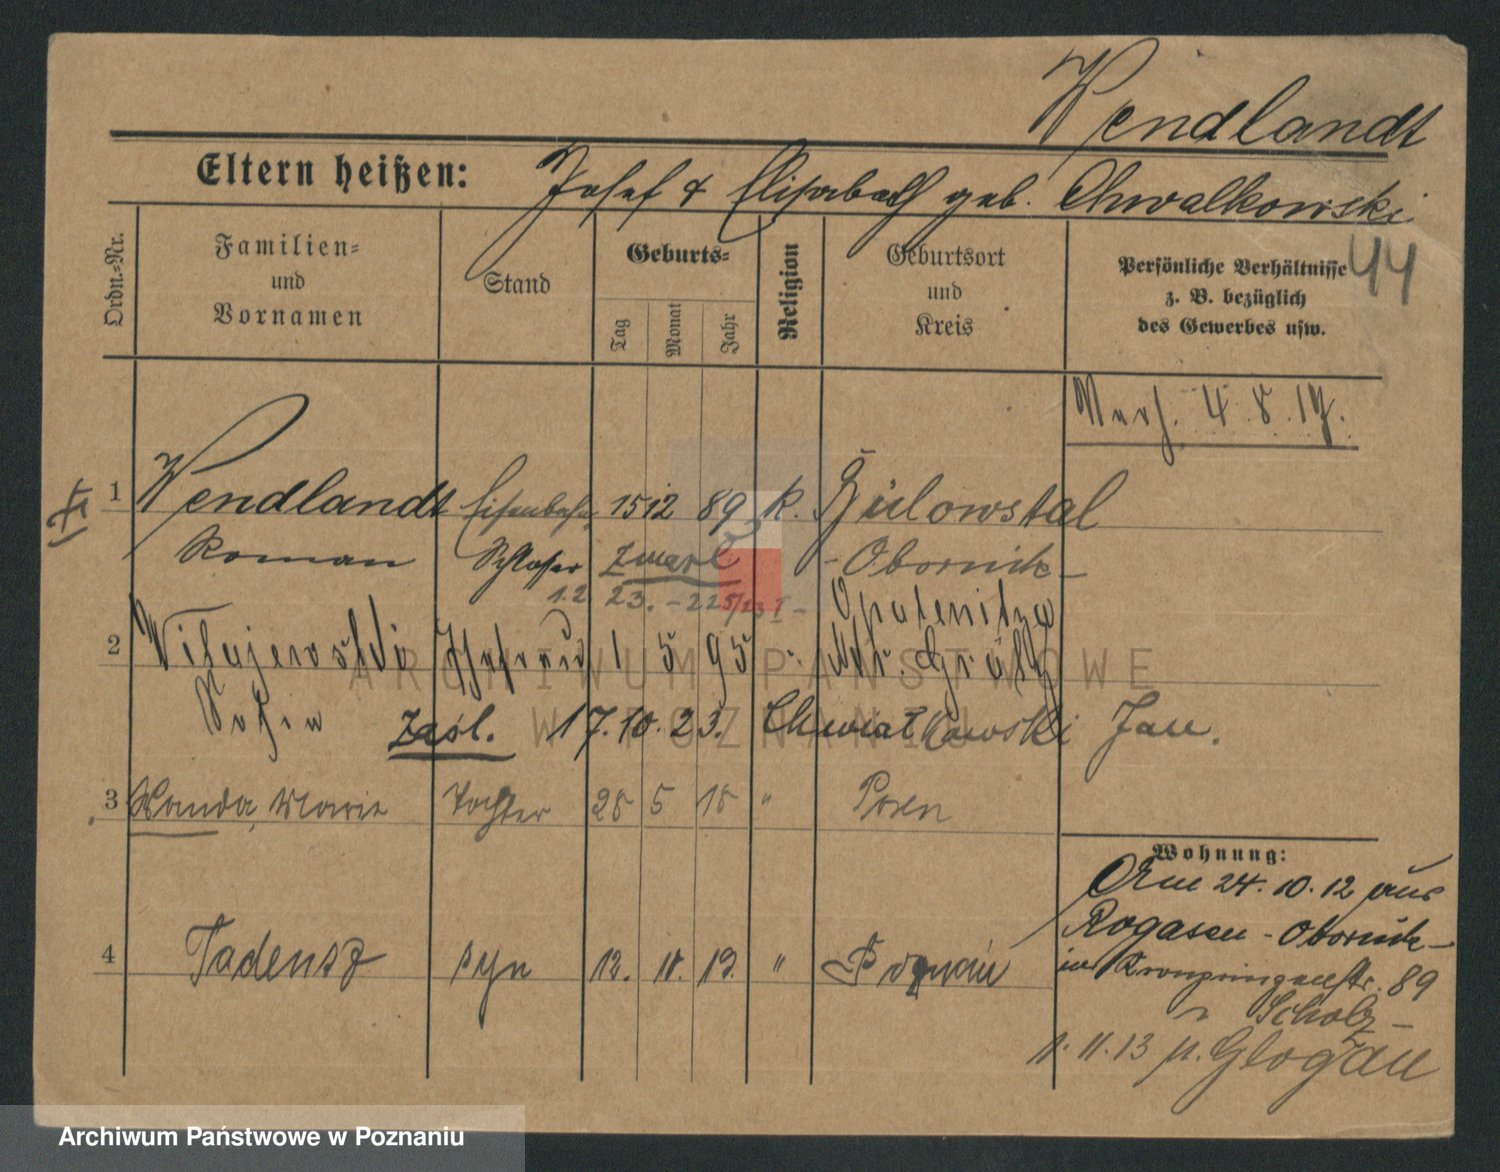 Wendlandt
Eltern heißen: Josef & Elisabeth geb. Chwalkowski
44
Ordn.=Nr.
Familien=
und
Vornamen
Stand
Geburts=
Tag
Monat
Jahr
Religion
Geburtsort
und
Kreis
Persönliche Verhältnisse
z. B. bezüglich
des Gewerbes usw.
Verh. 4 8 17.
1 Wendlandt Eisenbahn 15 12 89 k. Bülowstal
Roman Schlosser zmarł - Obornik -
1.2 23.
Opalenitza
2 1 5 95 " Kr. Grätz
Zasl. 17.10.23. Chwiatkowski Jan.
3 Wanda, Marie Tochter 28 5 18 " Posen
Wohnung:
Am 24.10.12 aus
Rogasen - Obornik -
in Kronprinzenstr. 89
4 Tadeusz syn 12. 11. 19. " Poznań
Scholz -
1.11.13 n. Glogau
ARCHIWUM PAŃSTWOWE
W POZNANIU
Archiwum Państwowe w Poznaniu